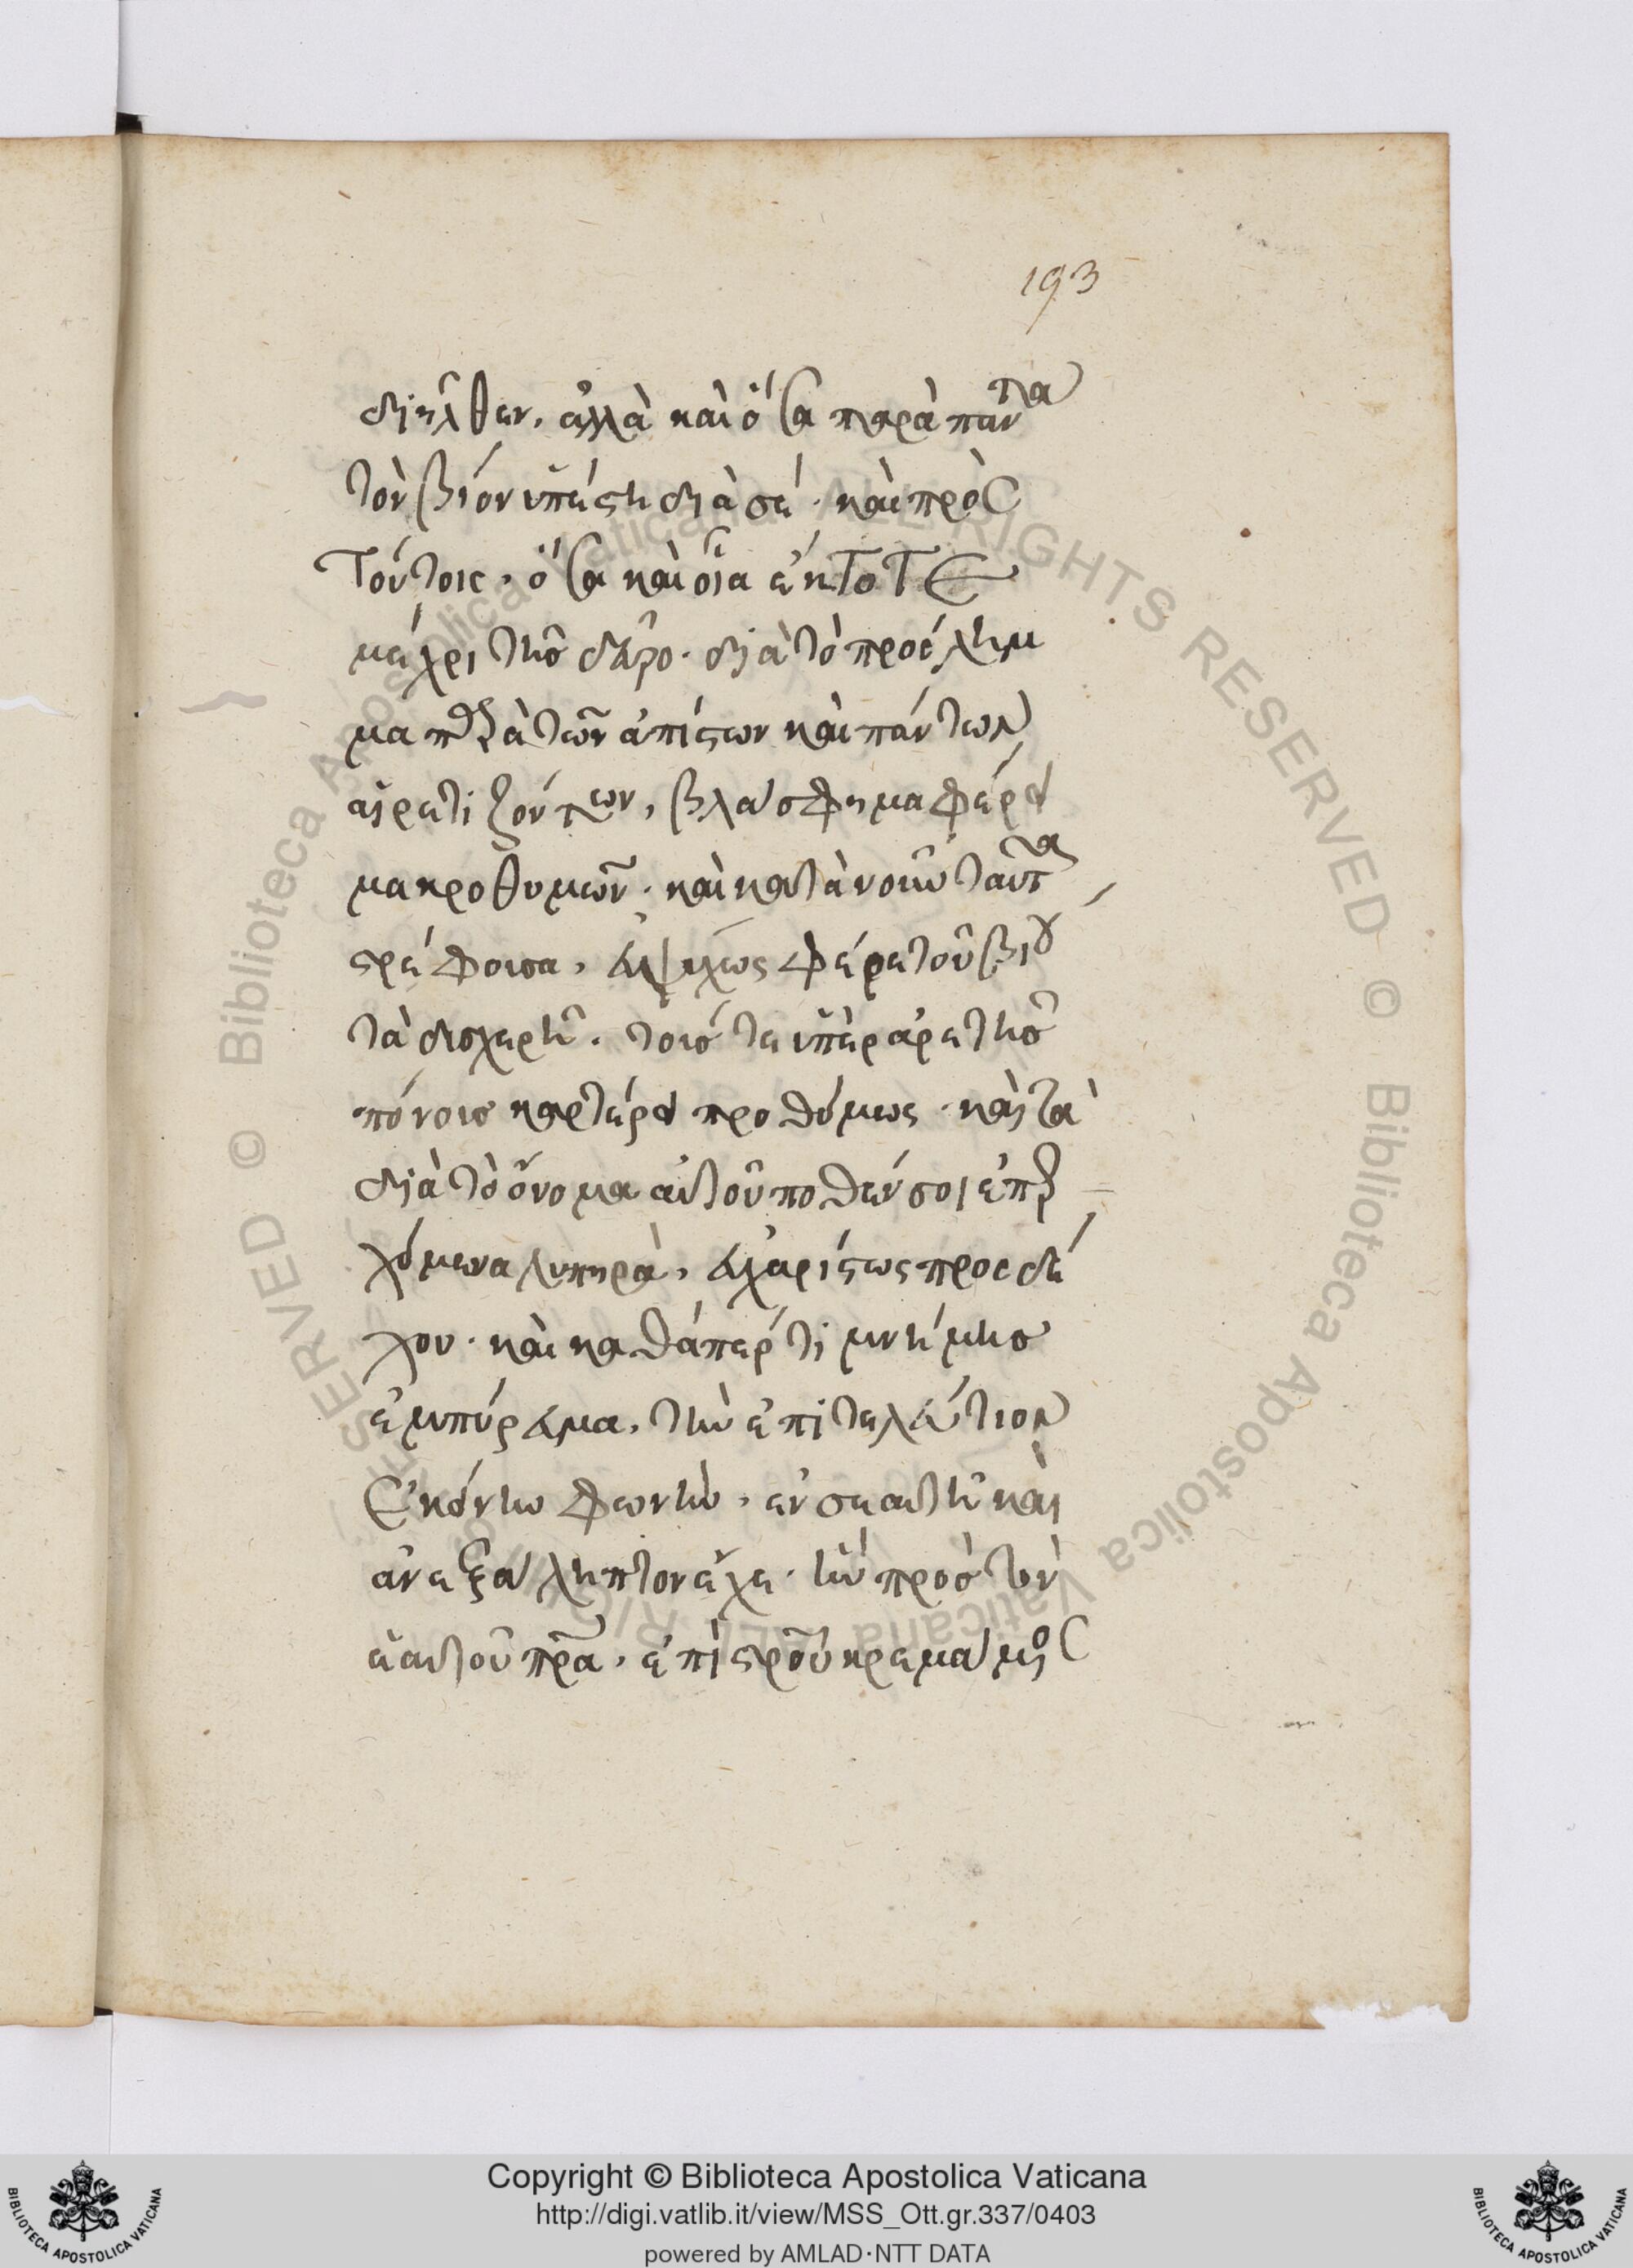 193
διῆλθεν. ἀλλὰ καὶ ὅσα παρὰ πάντα
τὸν βίον ὑπέστη διὰ σέ· καὶ πρὸς
τούτοις, ὅσα καὶ οἷα ἐκτοτε
μέχρι τῆς δεῦρο· διὰ τὸ πρόσλημ
μα παρὰ τῶν ἀπίστων καὶ πάντων
αἱρετιζόντων, βλάσφημα φέρει
μακροθυμῶν· καὶ κατὰ νοῦν ταῦτα
στρέφουσα, εὐψύχως φέρε τοῦ βίου
τὰ δυσχερῆ. τούς τε ὑπὲρ ἀρετῆς
πόνους καρτέρει προθύμως· καὶ τὰ
διὰ τὸ ὄνομα αὐτοῦ ποθέν σοι ἐπερ
χόμενα λυπηρά, εὐχαρίστως προσδέ
χου· καὶ καθάπερ τι μνήμης
ἐμπύρευμα, τὴν ἐπιτελεύτιον
ἐκείνην φωνὴν, ἐν σεαυτῇ καὶ
ἀνεξάλειπτον ἔχε· ἣν πρὸς τὸν
ἑαυτοῦ πρα, ἐπὶ σροῦ κρεμάμενος
Copyright © Biblioteca Apostolica Vaticana
http://digi.vatlib.it/view/MSS_Ott.gr.337/0403
powered by AMLAD·NTT DATA
BIBLIOTECA APOSTOLICA VATICANA
BIBLIOTECA APOSTOLICA VATICANA
Biblioteca Apostolica Vaticana ALL RIGHTS RESERVED © Biblioteca Apostolica Vaticana ALL RIGHTS RESERVED ©